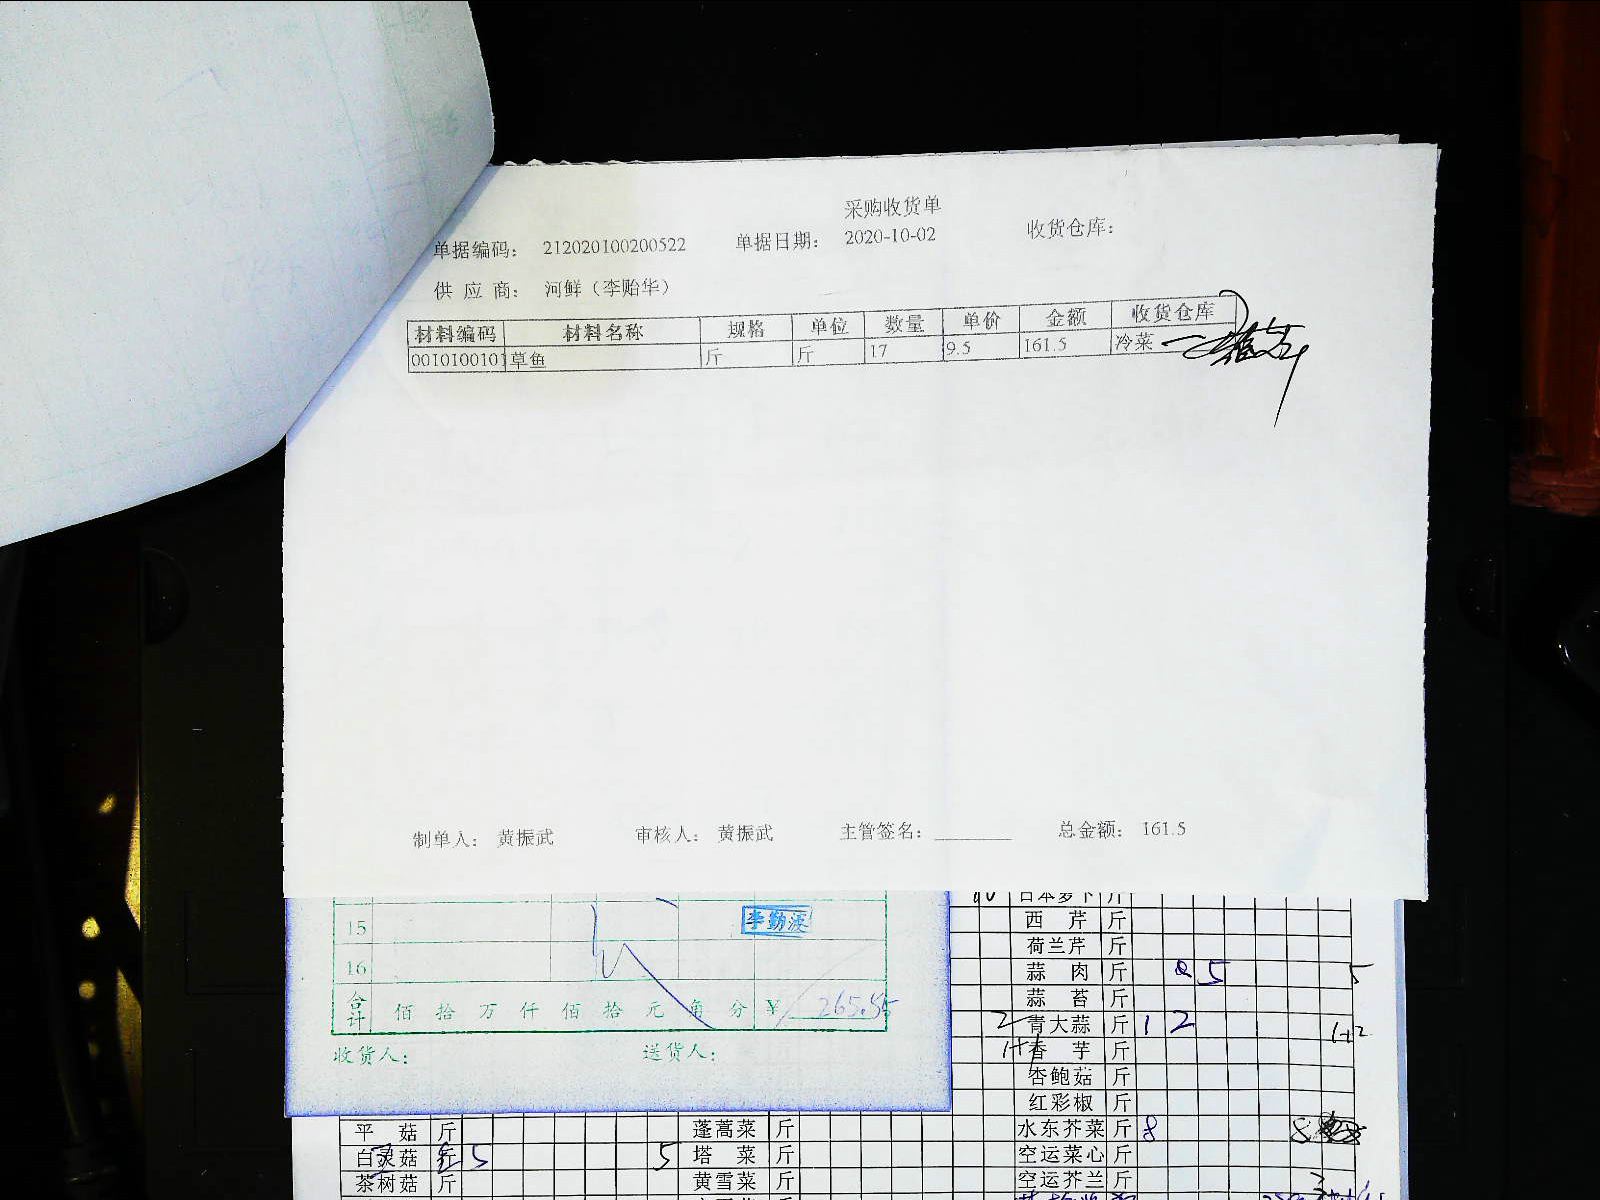 采购收货单
单据编码: 212020100200522 单据日期: 2020-10-02 收货仓库:
供应商: 河鲜（李贻华）
材料编码 材料名称 规格 单位 数量 单价 金额 收货仓库
0010100101 草鱼 斤 斤 17 9.5 161.5 冷菜
制单人: 黄振武 审核人: 黄振武 主管签名: 总金额: 161.5
15 李勤波
16
合计 佰拾万仟佰拾元角分 ¥ 265.55
收货人: 送货人:
日本萝卜 斤
西芹 斤
荷兰芹 斤
蒜肉 斤 5 5
蒜苔 斤
2 青大蒜 斤 1 2 1+2
1+ 香芋 斤
杏鲍菇 斤
红彩椒 斤
平菇 斤 蓬蒿菜 斤 水东芥菜 斤 8 8
白灵菇 斤 5 5 塔菜 斤 空运菜心 斤
茶树菇 斤 黄雪菜 斤 空运芥兰 斤